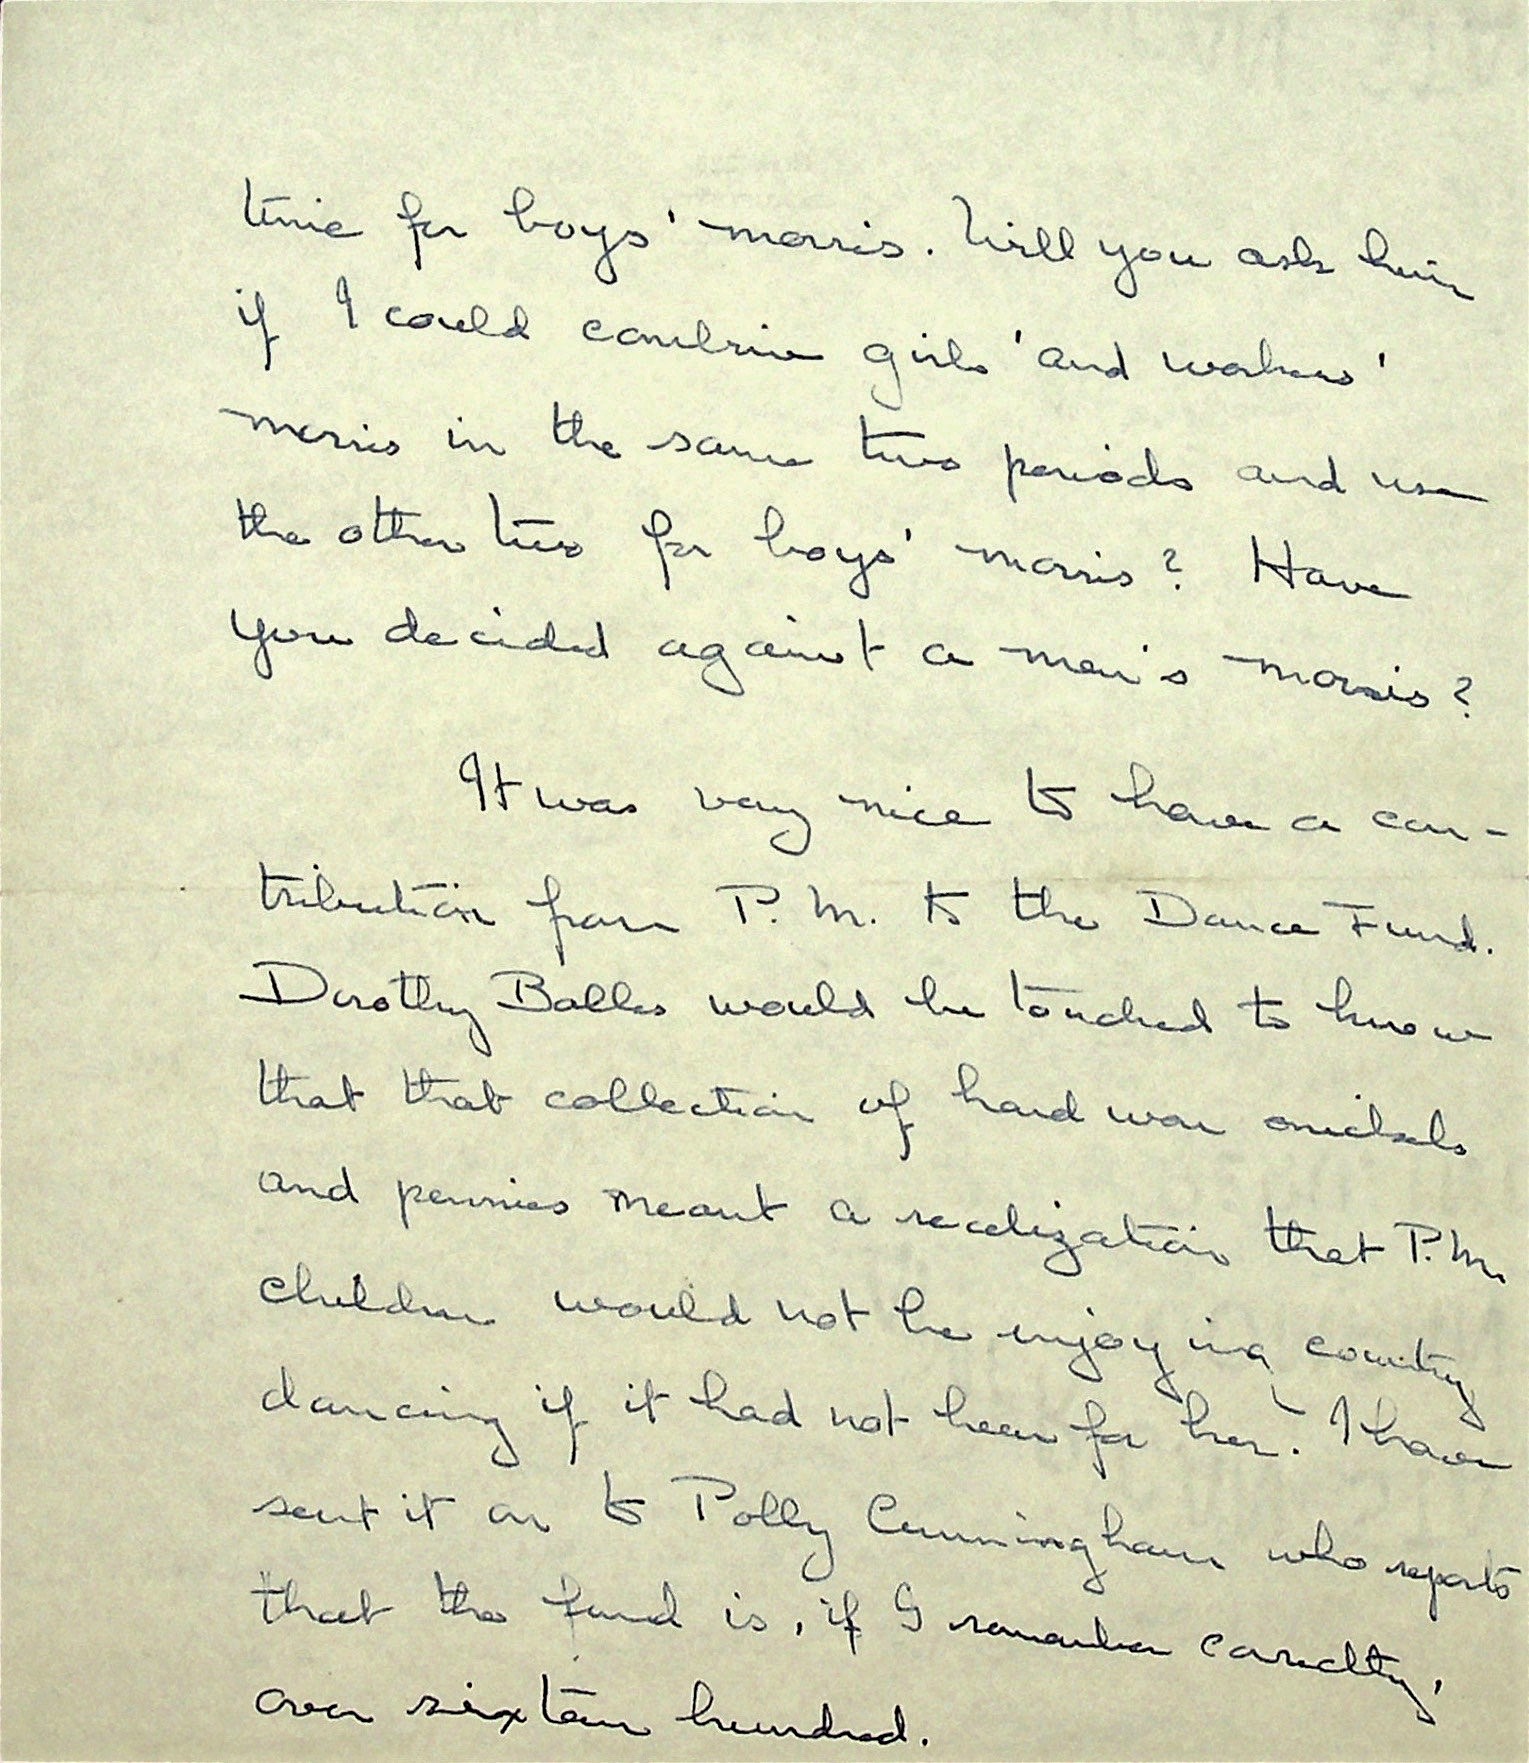 time for boys' morris. Will you ask him
if I could combine girls' and workers'
morris in the same two periods and use
the other two for boys' morris? Have
you decided against a men's morris?
It was very nice to have a con-
tribution from P. M. to the Dance Fund.
Dorothy Bolles would be touched to know
that that collection of hard won nickels
and pennies meant a realization that P.M.
children would not be enjoying country
dancing if it had not been for her. I have
sent it on to Polly Cunningham who reports
that the fund is, if I remember correctly,
over sixteen hundred.